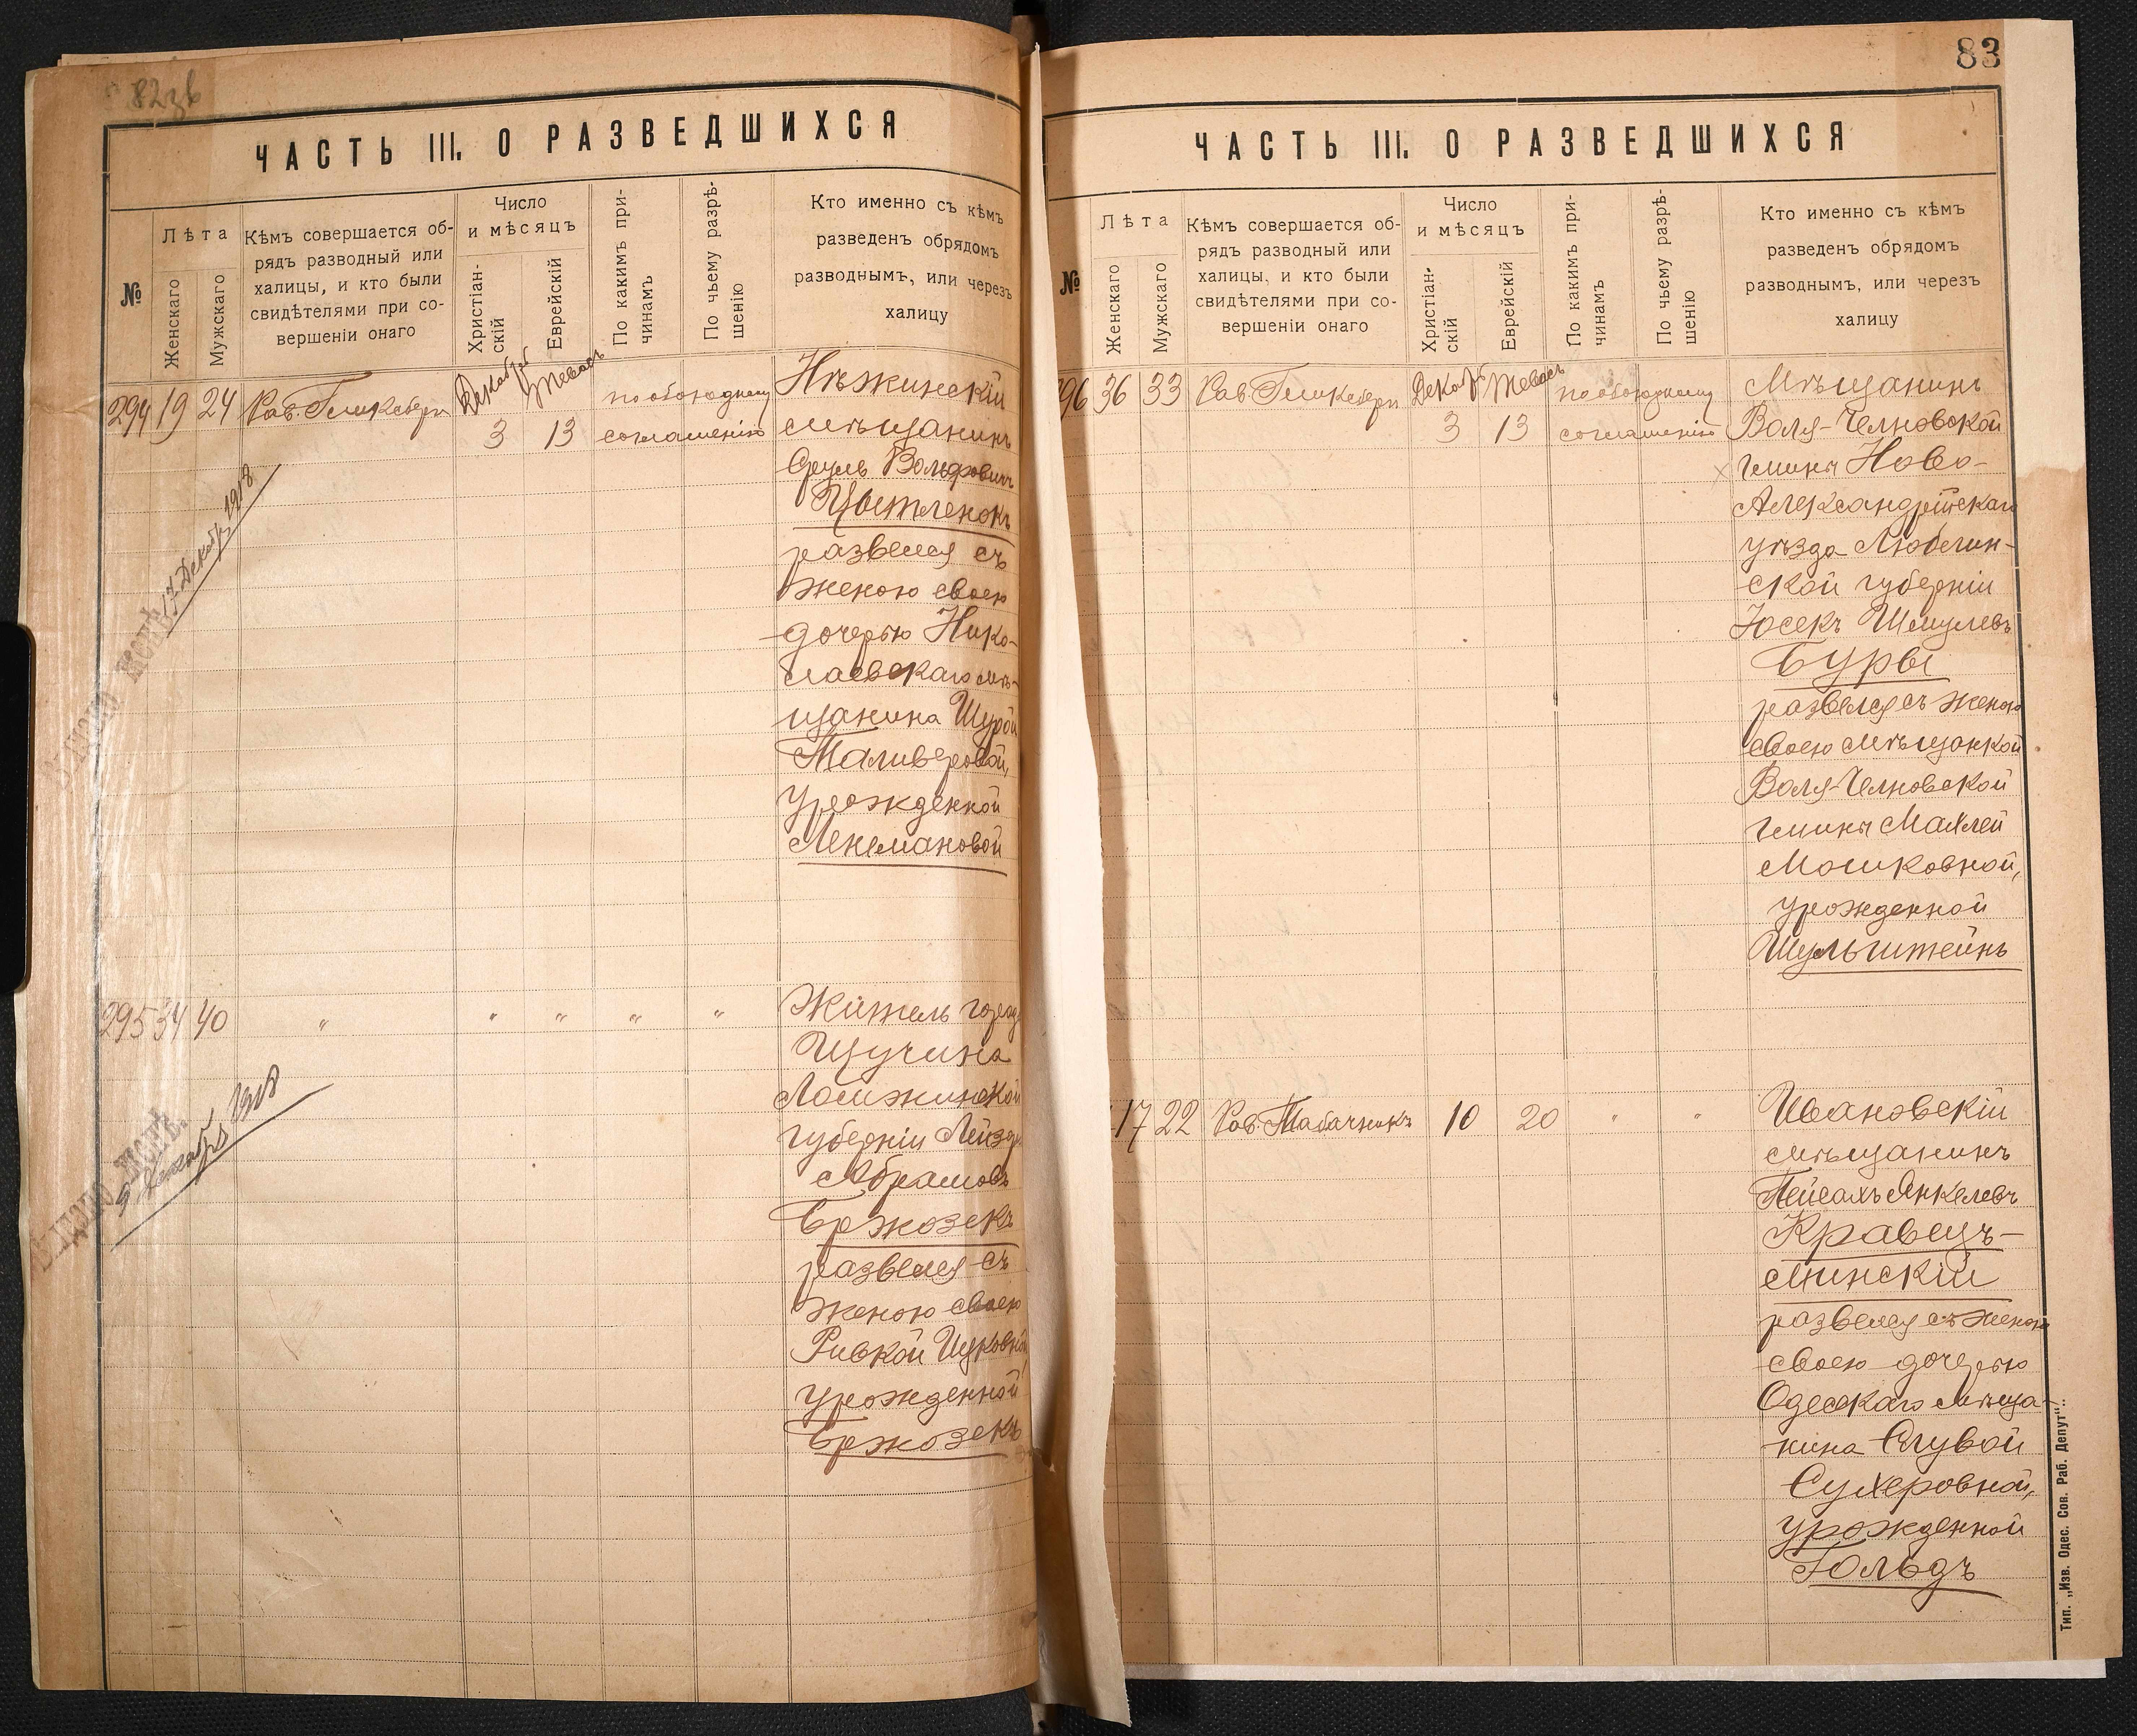 82зв
ЧАСТЬ III. О РАЗВЕДШИХСЯ
№
Лѣта
Женскаго
Мужскаго
Кѣмъ совершается об-
рядъ разводный или
халицы, и кто были
свидѣтелями при со-
вершеніи онаго
Число
и мѣсяцъ
Христіан-
скій
Еврейскій
По какимъ при-
чинамъ
По чьему разрѣ-
шенію
Кто именно съ кѣмъ
разведенъ обрядомъ
разводнымъ, или черезъ
халицу
294 19 24 Рав.
Декабрь
3 13
по обоюдному
соглашенію
Нѣжинскій
мѣщанинъ
Сруль Вольфовичъ
Цытленокъ
развелся съ
женою своею
дочерью Нико-
лаевскаго мѣ-
щанина Шурой
Маливеровой,
урожденной
Ленмановой
17 Декабря 1918
295 34 40 " " " " "
Житель города
Щучина
Ломжинской
губерніи
Абрамовъ
Бржозекъ
развелся съ
женою своею
Ривкой Ицковной
урожденной
Бржозекъ
1918
83
ЧАСТЬ III. О РАЗВЕДШИХСЯ
№
Лѣта
Женскаго
Мужскаго
Кѣмъ совершается об-
рядъ разводный или
халицы, и кто были
свидѣтелями при со-
вершеніи онаго
Число
и мѣсяцъ
Христіан-
скій
Еврейскій
По какимъ при-
чинамъ
По чьему разрѣ-
шенію
Кто именно съ кѣмъ
разведенъ обрядомъ
разводнымъ, или черезъ
халицу
96 36 33 Рав.
3 13
по обоюдному
соглашенію
Мѣщанинъ
Воля-Челновской
гмины Ново-
Александрійскаго
уѣзда Люблин-
ской губерніи
Іосекъ Шмулевъ
Буры
развелся съ женою
своею мѣщанкой
Воля-Челновской
гмины Махлей
Мошковной,
урожденной
Шульштейнъ
17 22 Рав. Табачникъ 10 20 " "
Ивановскій
мѣщанинъ
Пейсахъ Янкелевъ
Кравецъ-
Минскій
развелся съ женою
своею дочерью
Одесскаго мѣща-
нина
Сухеровной,
урожденной
Гольдъ
Тип. „Изв. Одес. Сов. Раб. Депут“.